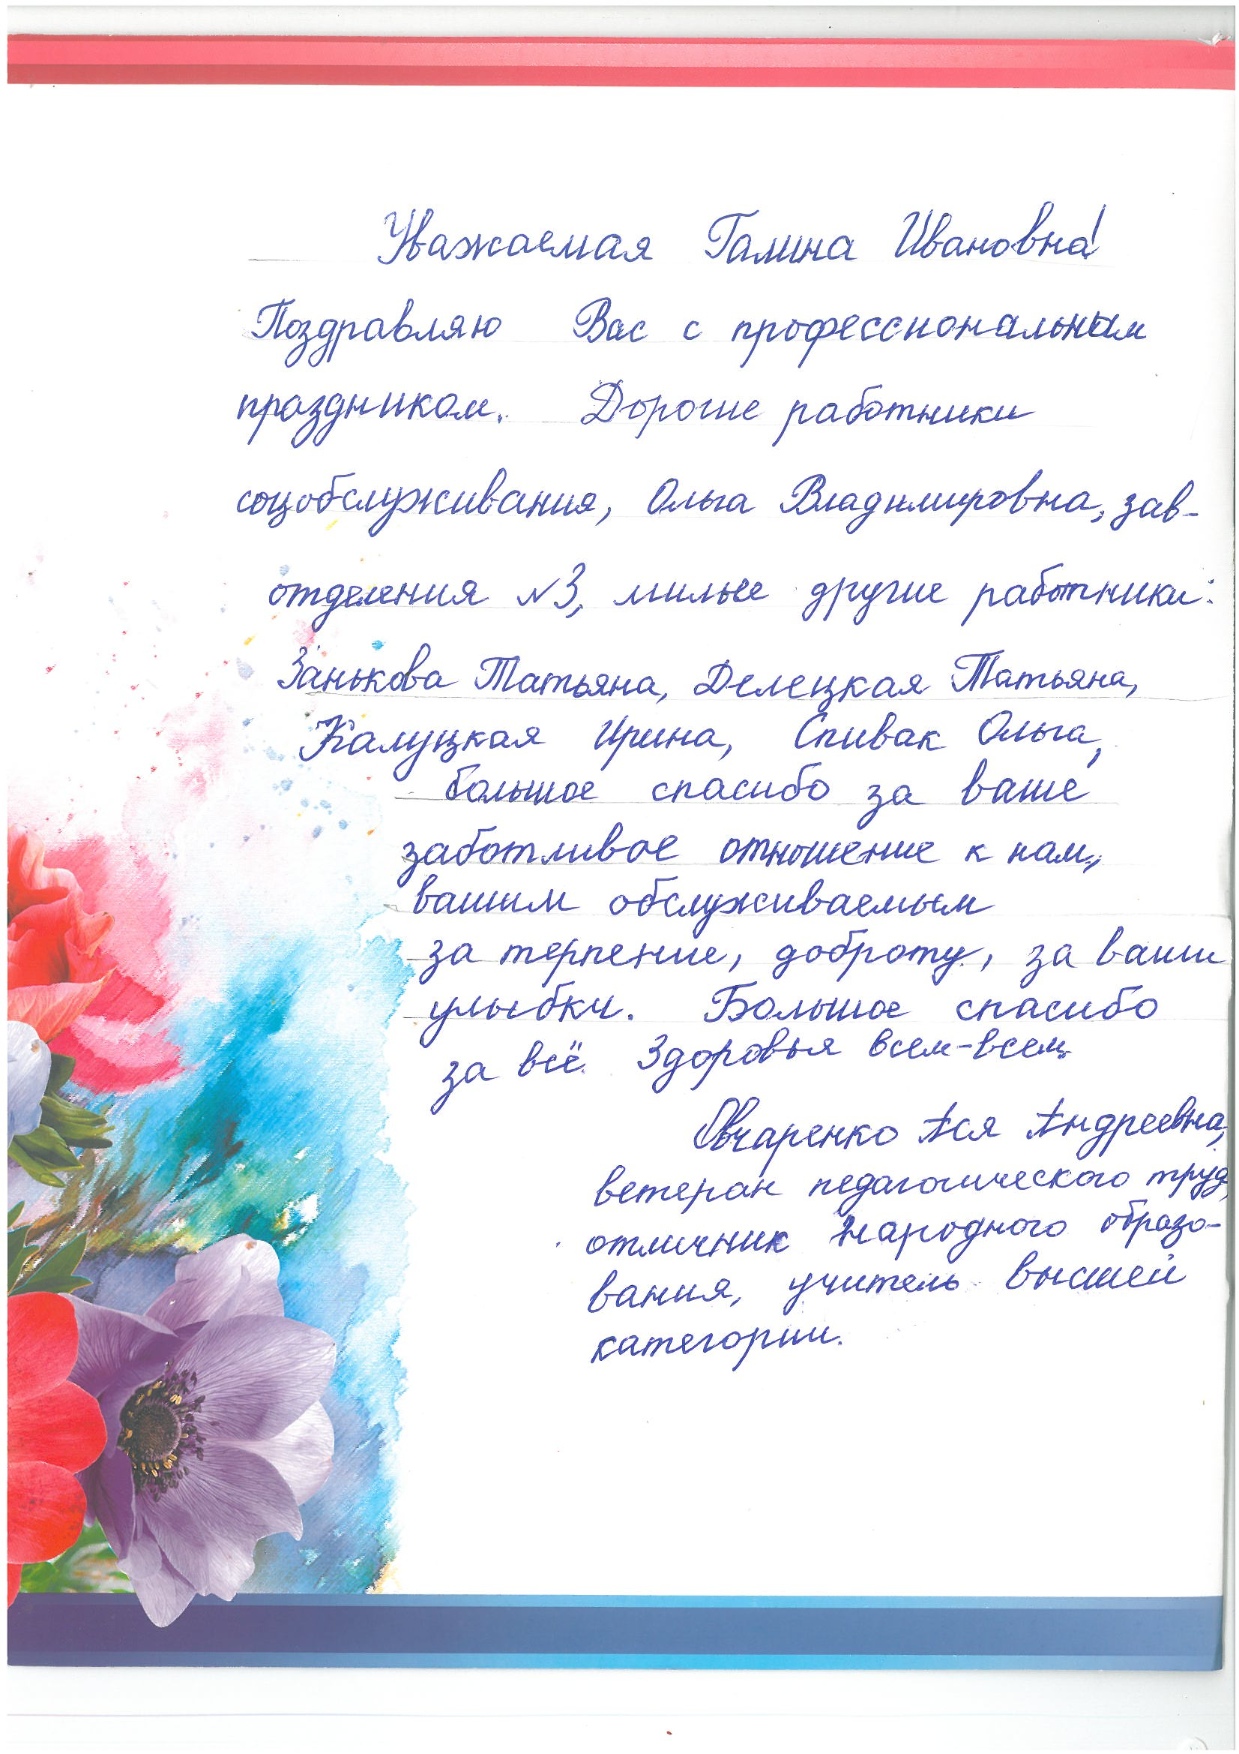 Уважаемая Галина Ивановна!
Поздравляю Вас с профессиональным
праздником. Дорогие работники
соцобслуживания, Ольга Владимировна, зав-
отделения №3, милые другие работники:
Занькова Татьяна, Делецкая Татьяна,
Калуцкая Ирина, Спивак Ольга,
большое спасибо за ваше
заботливое отношение к нам,
вашим обслуживаемым
за терпение, доброту, за ваши
улыбки. Большое спасибо
за всё. Здоровья всем-всем.
Овчаренко Ася Андреевна,
ветеран педагогического труд,
отличник народного образо-
вания, учитель высшей
категории.